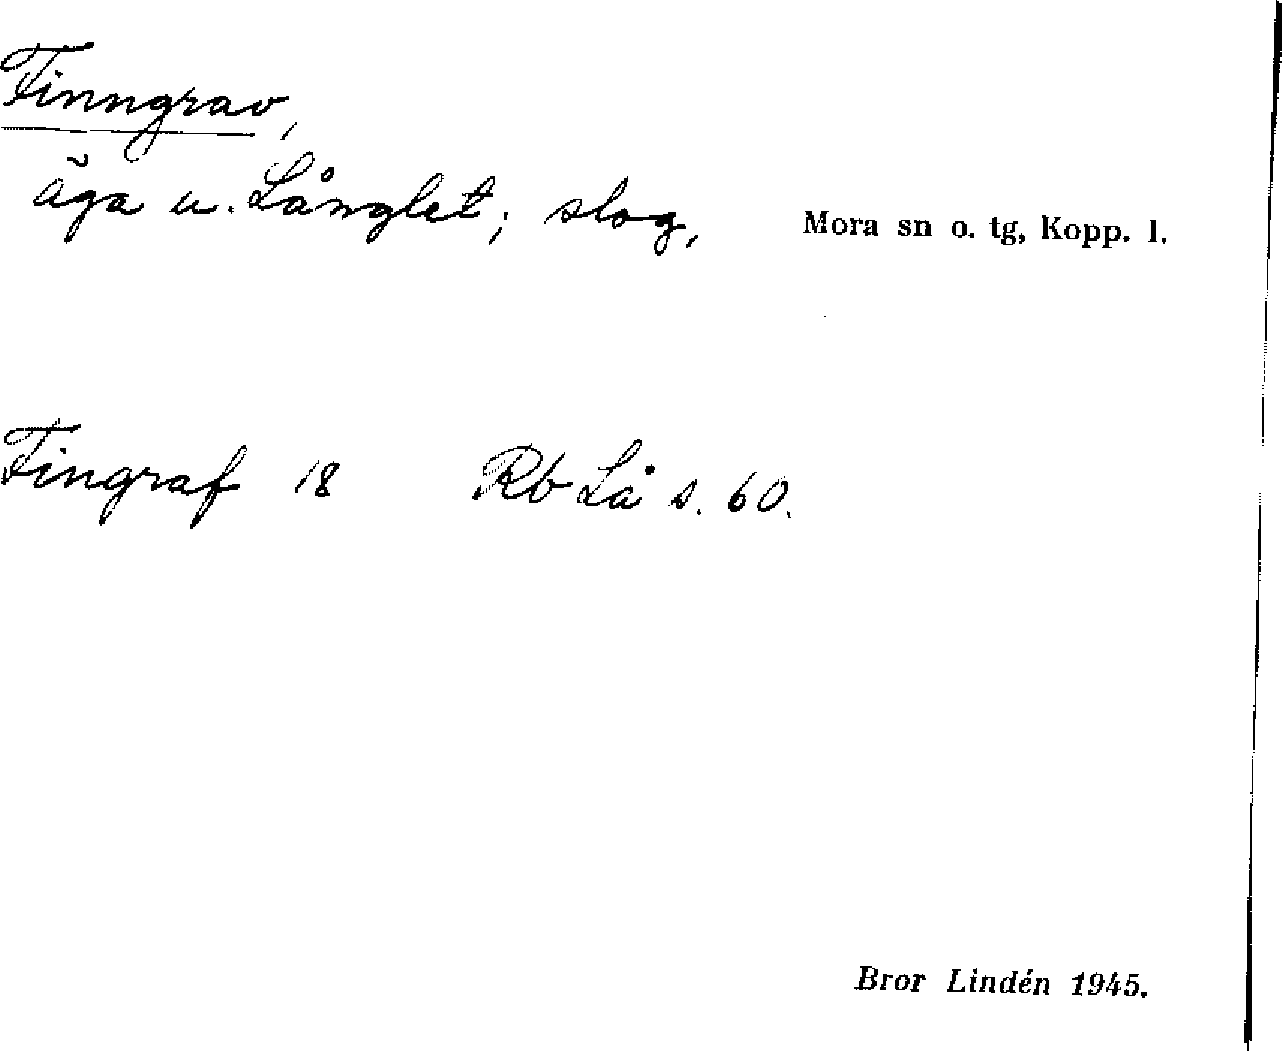 Finngrav,
äga u. Långlet; slog,
Mora sn o. tg, Kopp. l.
Fingraf 18 Rb Lå s. 60.
Bror Lindén 1945.